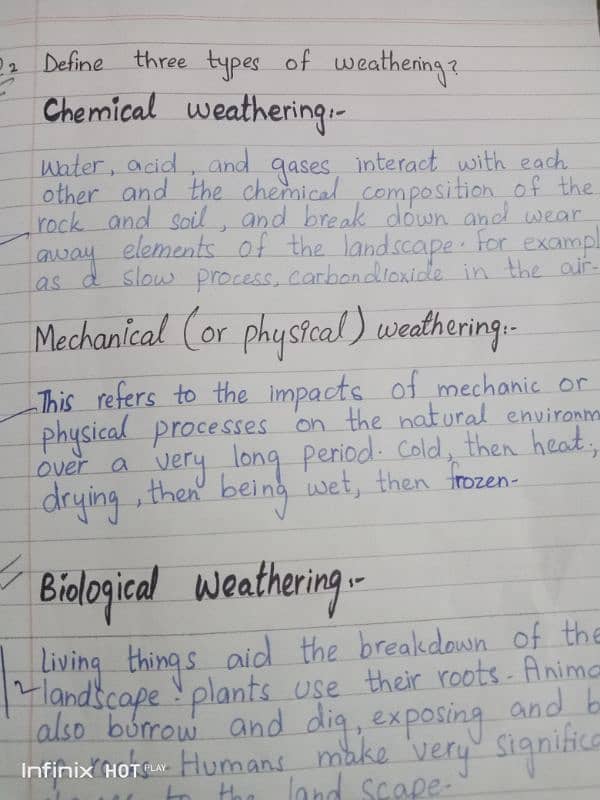 2 Define three types of weathering?
Chemical weathering:-
Water, acid, and gases interact with each
other and the chemical composition of the
rock and soil, and break down and wear
away elements of the landscape. For exampl
as a slow process, carbondioxide in the air-
Mechanical (or physical) weathering:-
This refers to the impacts of mechanic or
physical processes on the natural environm
over a very long period. Cold, then heat;
drying, then being wet, then frozen-
Biological weathering:-
Living things aid the breakdown of the
landscape: plants use their roots. Anima
also burrow and dig, exposing and b
Humans make very significa
to the land scape-
Infinix HOT PLAY